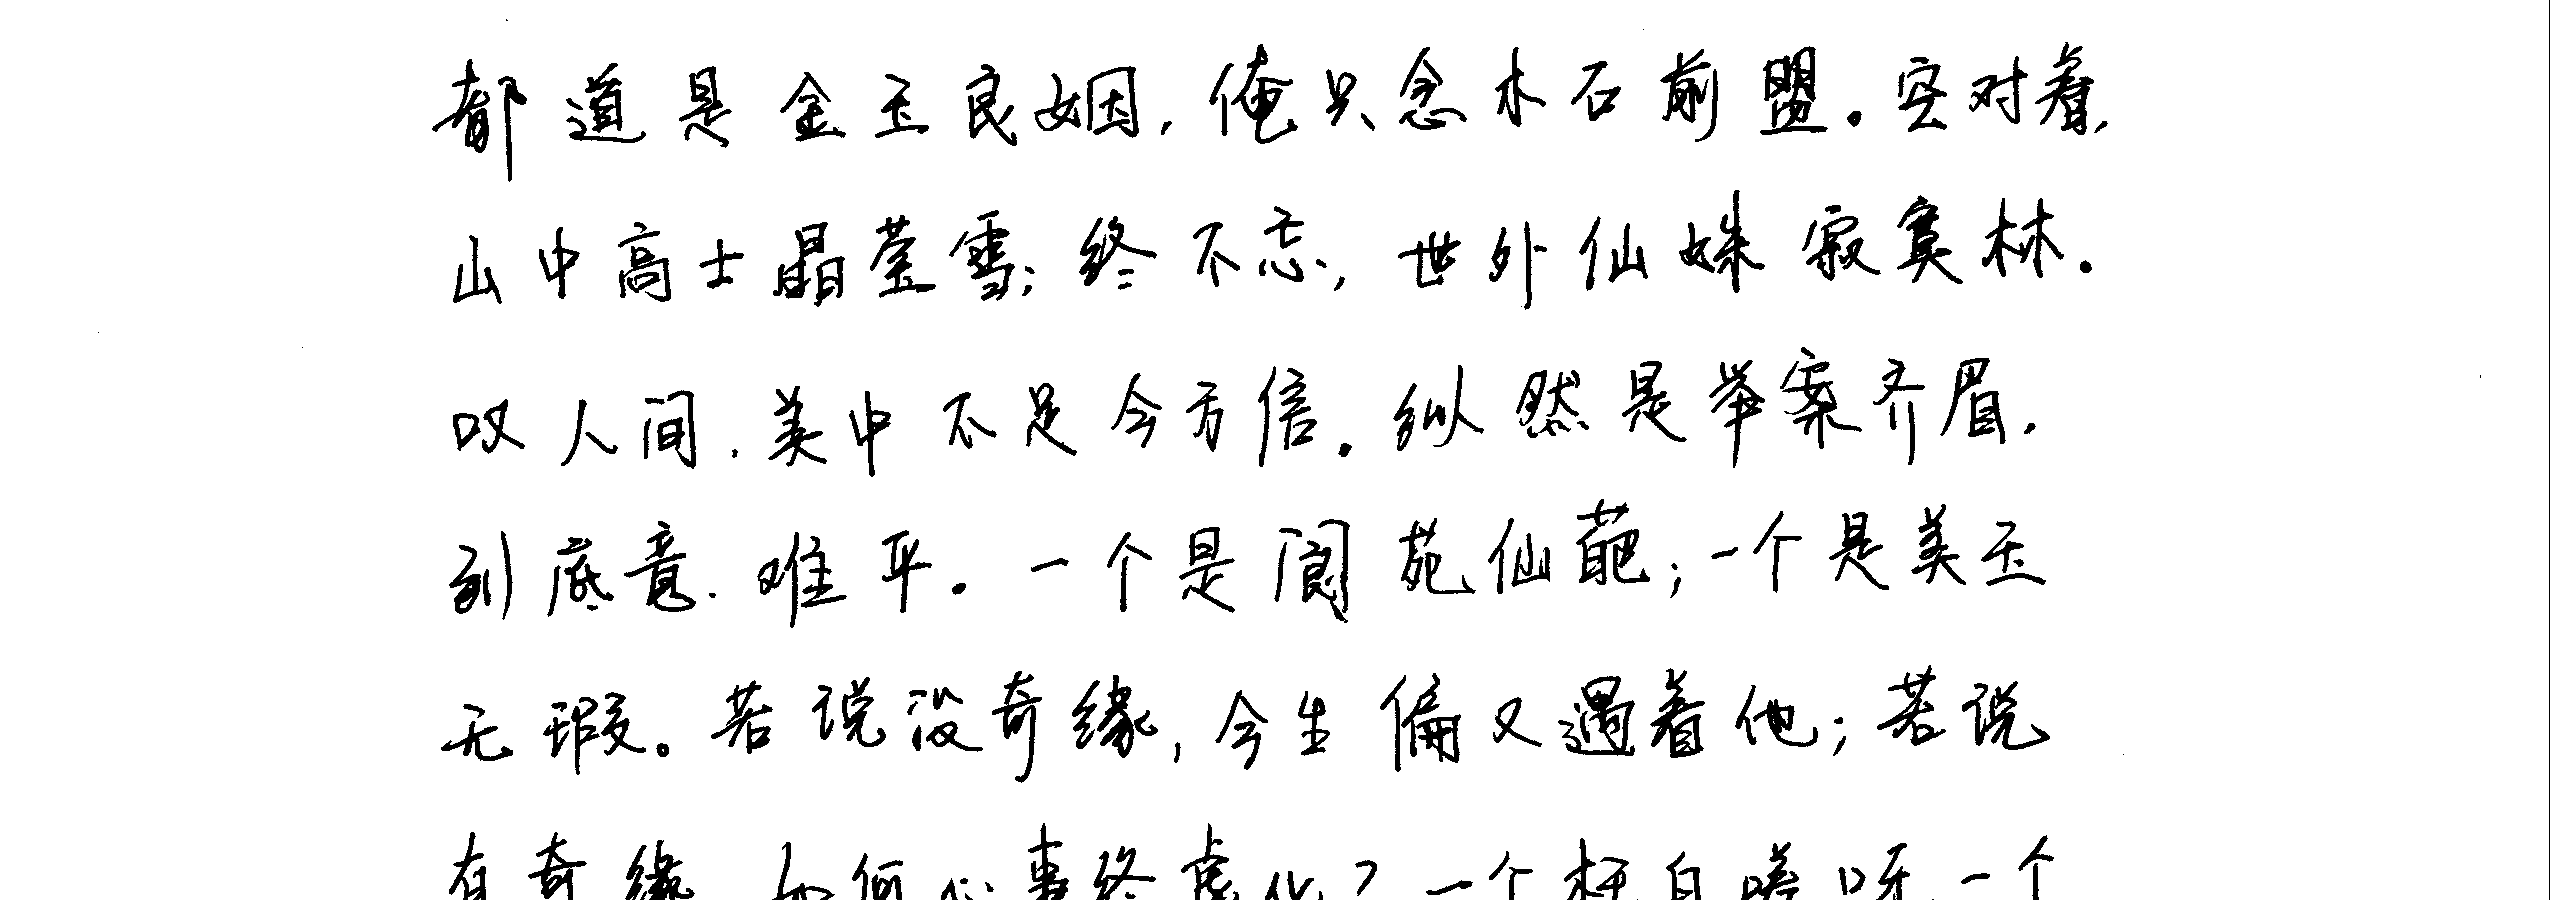 都道是金玉良姻，俺只念木石前盟。空对着，
山中高士晶莹雪；终不忘，世外仙姝寂寞林。
叹人间，美中不足今方信。纵然是举案齐眉，
到底意难平。一个是阆苑仙葩；一个是美玉
无瑕。若说没奇缘，今生偏又遇着他；若说
有奇缘 如何心事终虚化？一个枉自嗟呀 一个